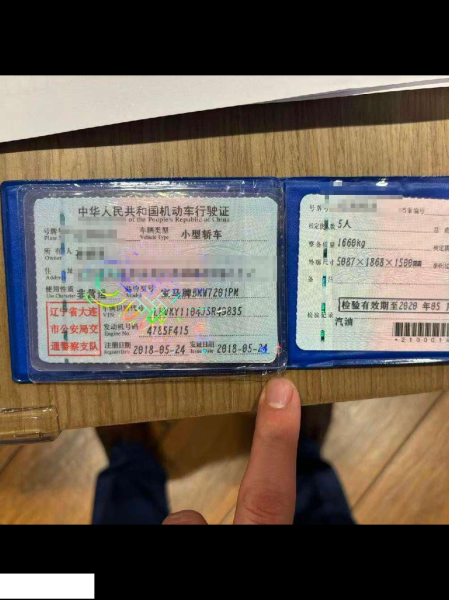 中华人民共和国机动车行驶证
of the People's Republic of China
号牌
车辆类型
Vehicle Type
小型轿车
所有人
Owner
住址
Address
使用性质
Use Character
非营运
品牌型号
Model
宝马牌BMW7201PM
辽宁省大连
市公安局交
通警察支队
车辆识别代号
VIN
发动机号码
Engine No.
4785F415
注册日期
Register Date
2018-05-24
发证日期
Issue Date
2018-05-24
号牌
档案编号
核定载人数
5人
整备质量
1660kg
外廓尺寸
5087×1868×1500mm
备注
检验有效期至2020年05
检验记录
汽油